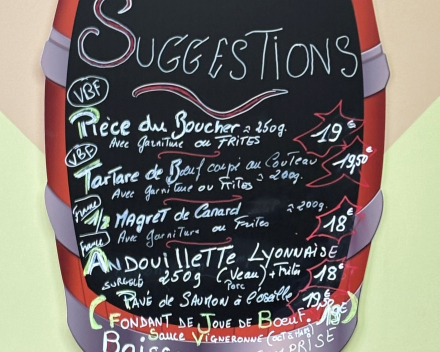 SUGGESTIONS
VBF
Pièce du Boucher ≈ 250g. 19€
Avec Garniture ou FRITES
VBF
Tartare de Bœuf coupé au Couteau 19,50€
Avec garniture ou Frites ≈ 200g.
France
1/2 MAGRET de CANARD ≈ 200g. 18€
Avec Garniture ou Frites
France
ANDOUILLETTE LYONNAISE
SURGELÉ 250g (Veau) + Frites 18€
Porc
PAVÉ de SAUMON à l'oseille 19,50€
(FONDANT DE JOUE DE BOEUF. 19€)
SAUCE VIGNERONNE